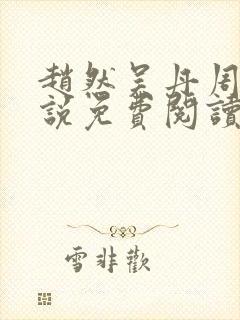 趙然吳丹周
說免費閱讀
雪非歡